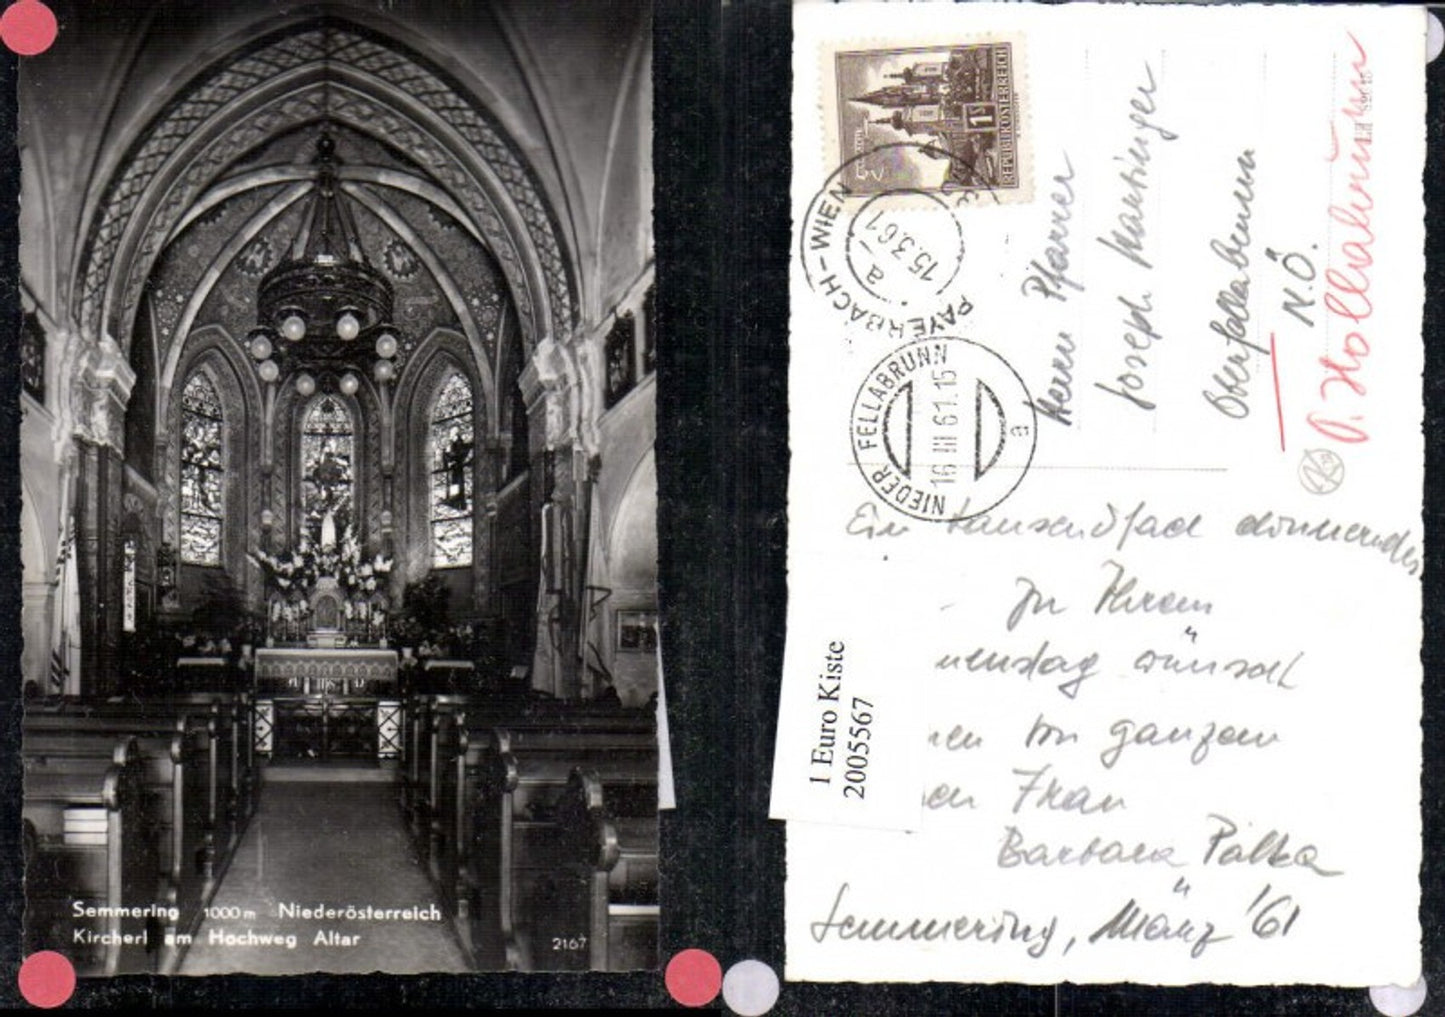 Semmering 1000 m Niederösterreich
Kircherl am Hochweg Altar
2167
REPUBLIK ÖSTERREICH
1S
PAYERBACH-WIEN
a
15.3.61
NIEDER FELLABRUNN
16 III 61.15
a
Herrn Pfarrer
Joseph
Oberfellabrunn
N.Ö.
P. Hollabrunn
Ein tausendfach donnerndes
zu Ihrem
menstag wünscht
von ganzem
Frau
Barbara Palka
Semmering, März '61
1 Euro Kiste
2005567